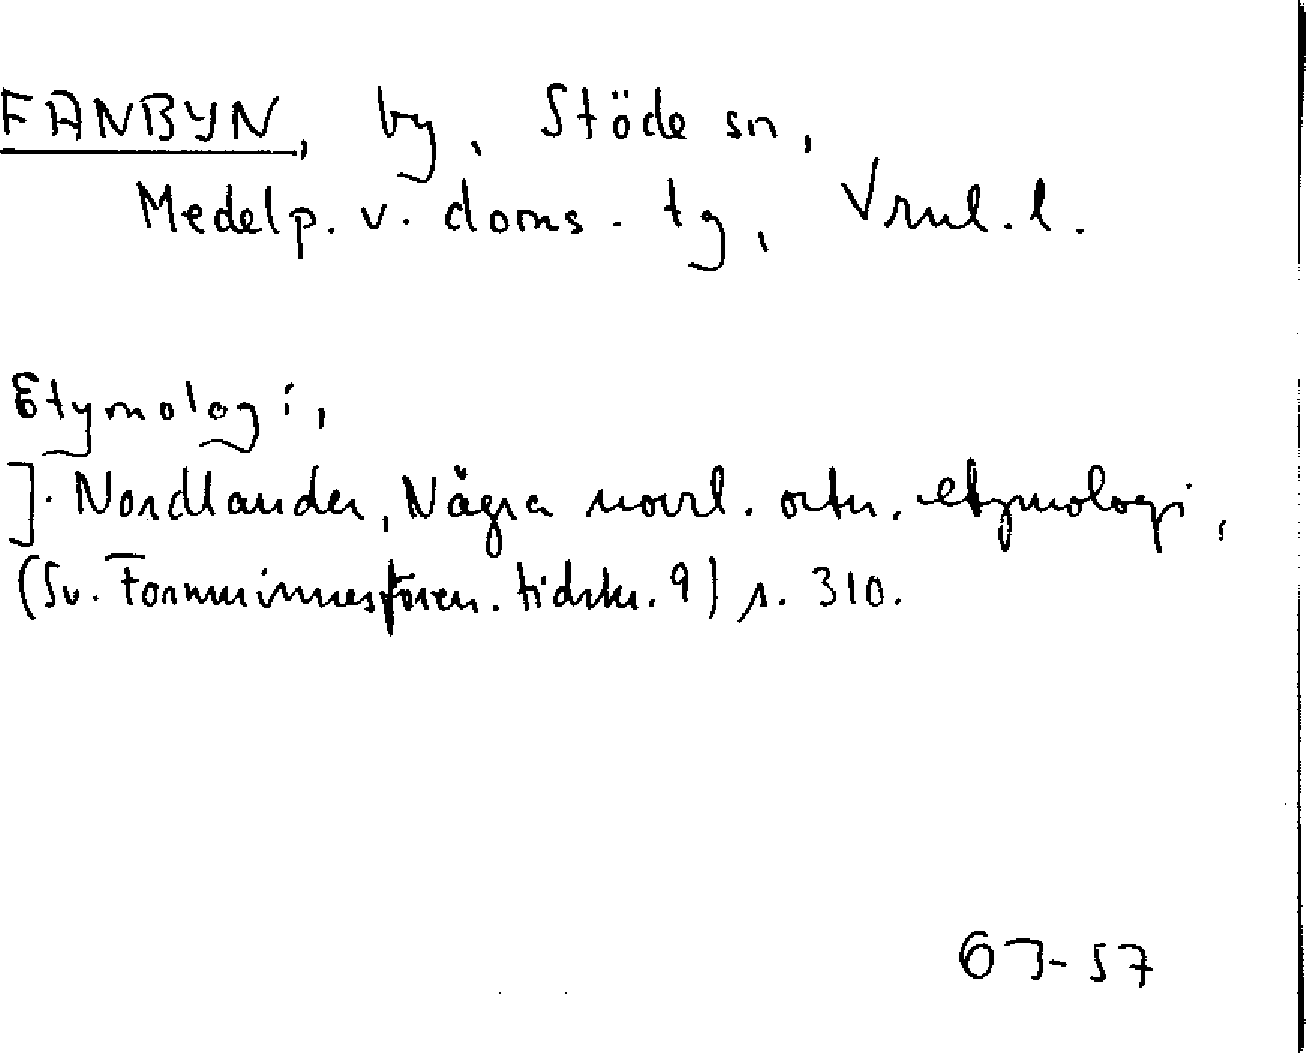 FANBYN, by, Stöde sn,
Medelp. v. doms. tg, Vrnl. l.
Etymologi,
J. Nordlander, Några norrl. ortn. etymologi,
(Sv. Fornminnesfören. tidskr. 9) s. 310.
GJ-57